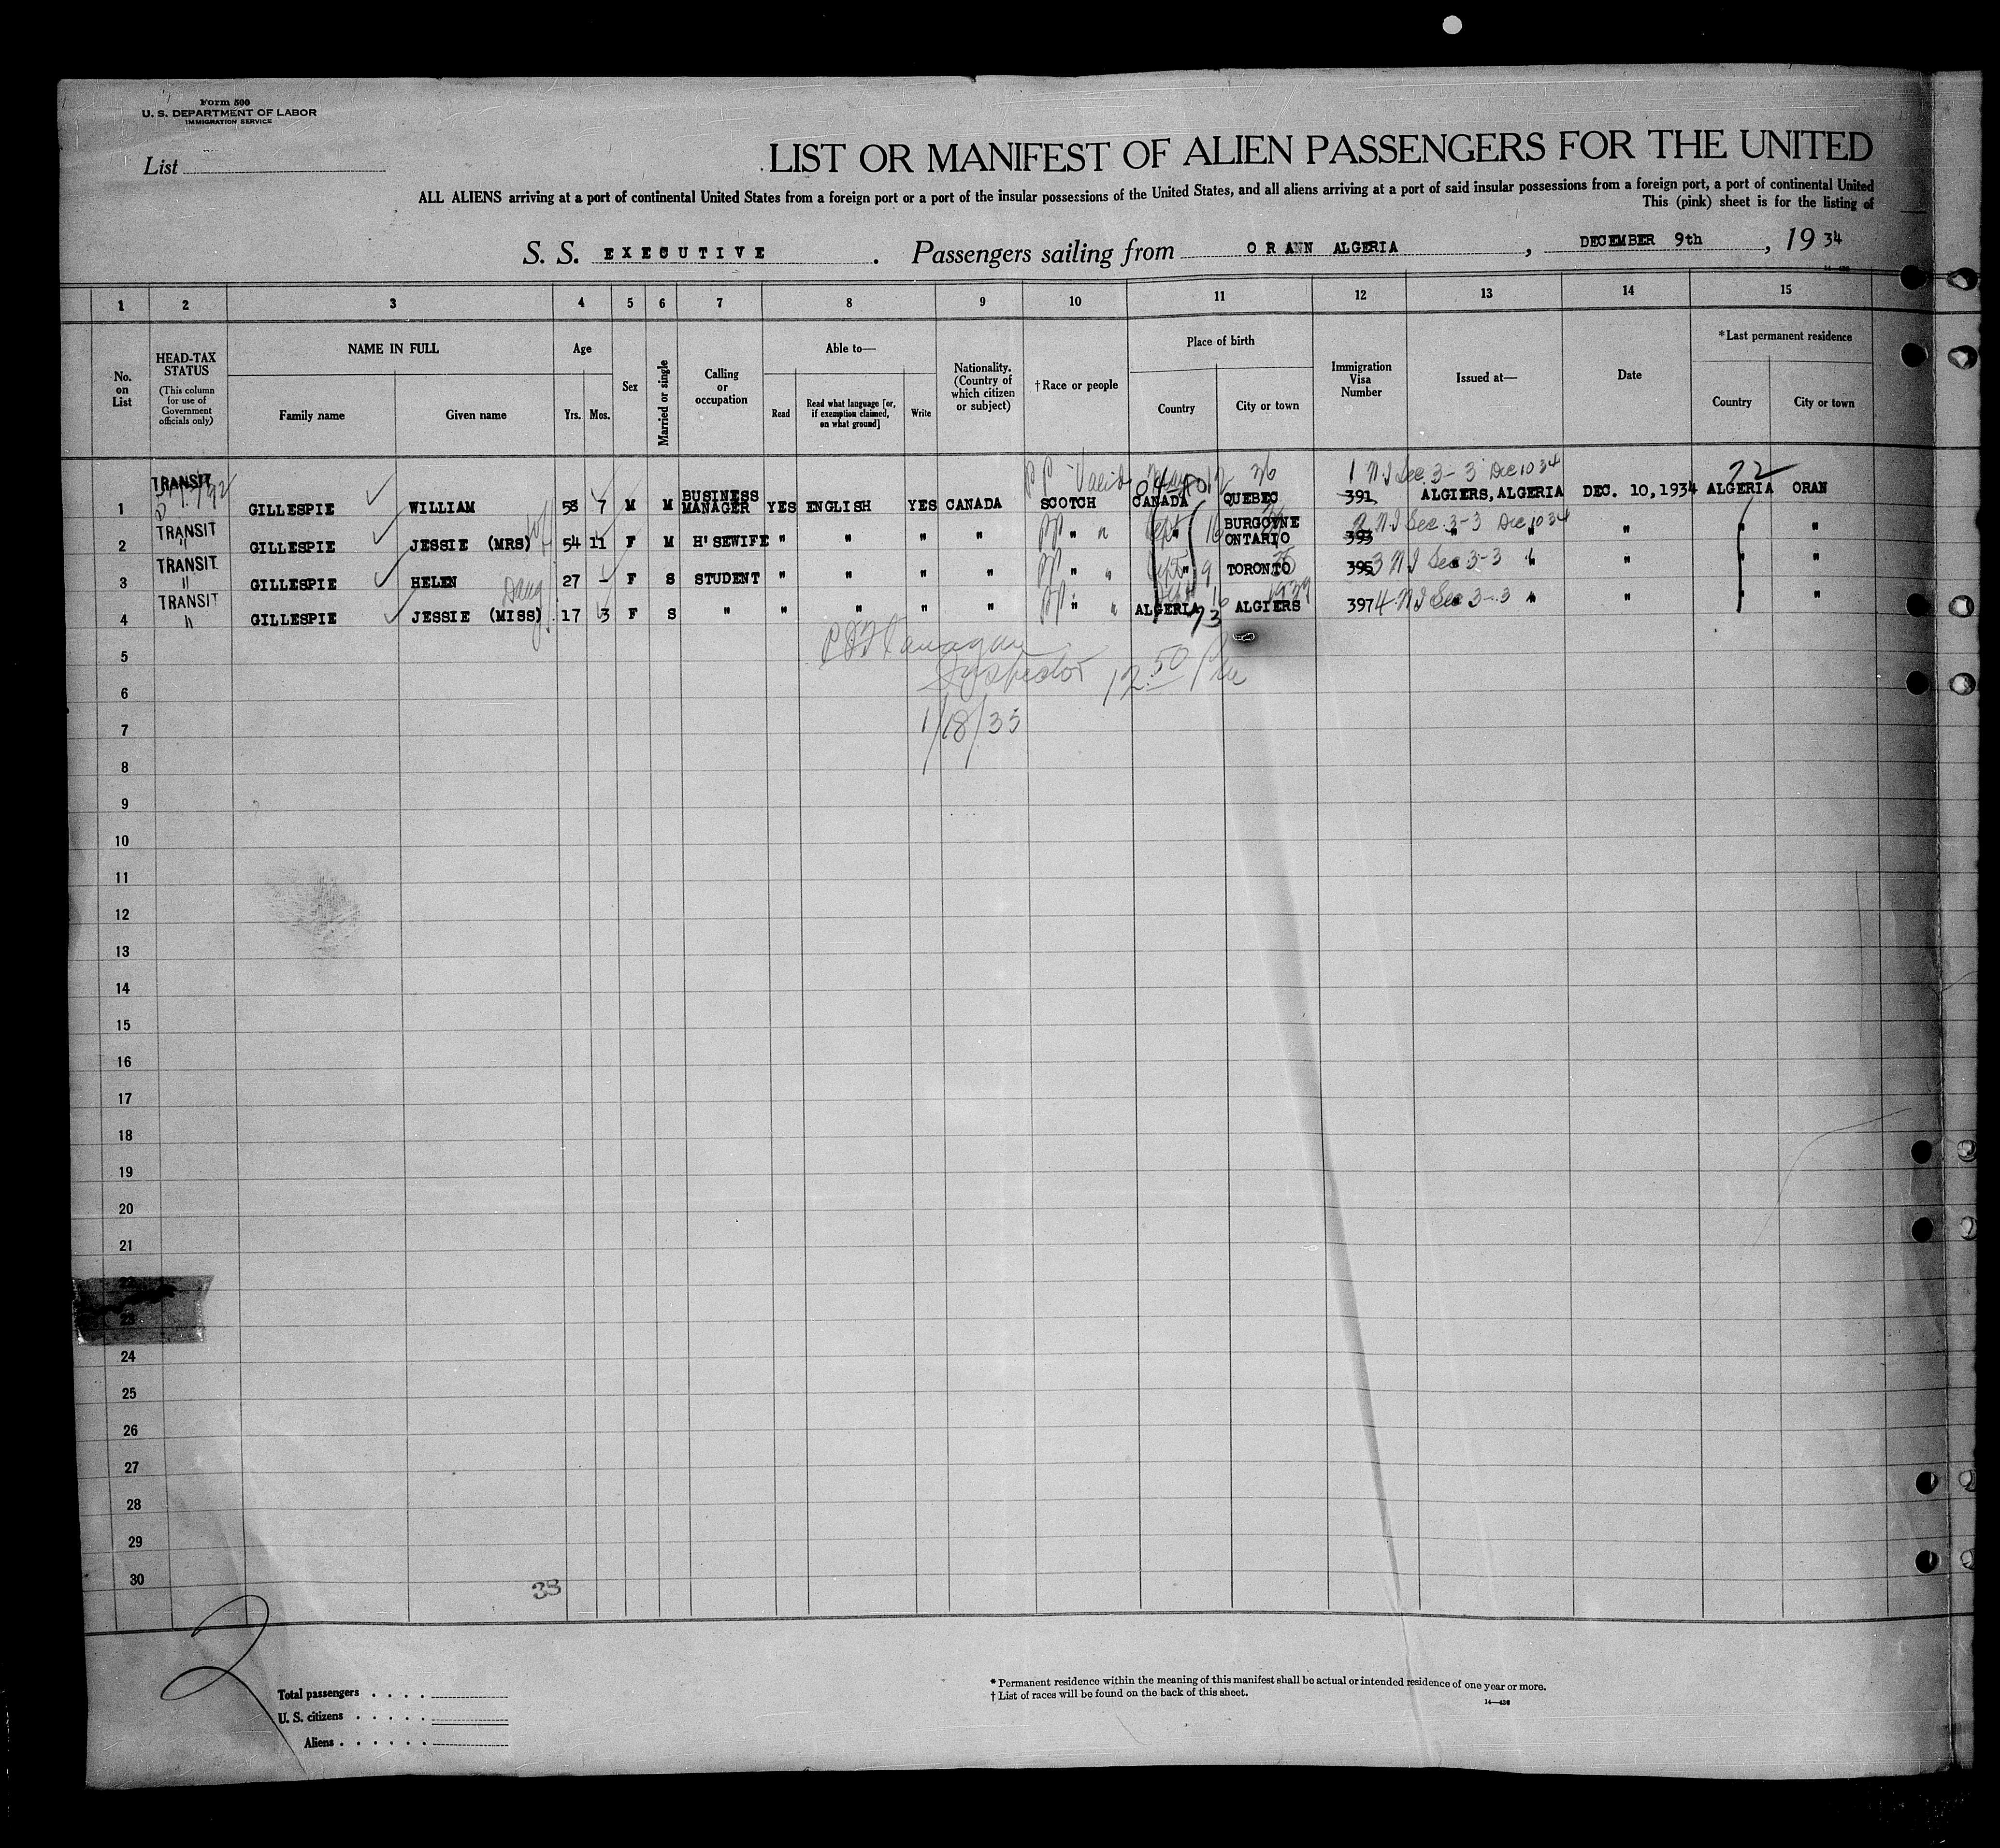 Form 500
U. S. DEPARTMENT OF LABOR
IMMIGRATION SERVICE
List
LIST OR MANIFEST OF ALIEN PASSENGERS FOR THE UNITED
ALL ALIENS arriving at a port of continental United States from a foreign port or a port of the insular possessions of the United States, and all aliens arriving at a port of said insular possessions from a foreign port, a port of continental United
This (pink) sheet is for the listing of
S. S. EXECUTIVE. Passengers sailing from ORANN ALGERIA, DECEMBER 9th, 19 34
1 2 3 4 5 6 7 8 9 10 11 12 13 14 15
No. on List
HEAD-TAX STATUS (This column for use of Government officials only)
NAME IN FULL
Family name
Given name
Age
Yrs.
Mos.
Sex
Married or single
Calling or occupation
Able to—
Read
Read what language [or, if exemption claimed, on what ground]
Write
Nationality. (Country of which citizen or subject)
†Race or people
Place of birth
Country
City or town
Immigration Visa Number
Issued at—
Date
*Last permanent residence
Country
City or town
PP Valid 36 1 NI Sec. 3-3 Dec 10 34 72
1 TRANSIT GILLESPIE WILLIAM 58 7 M M BUSINESS MANAGER YES ENGLISH YES CANADA SCOTCH CANADA QUEBEC 391 ALGIERS, ALGERIA DEC. 10, 1934 ALGERIA ORAN
2 TRANSIT " GILLESPIE JESSIE (MRS) 54 11 F M H'SEWIFE " " " " PP " " " BURGOYNE ONTARIO 393 2 NI Sec. 3-3 Dec 10 34 " " " " "
3 TRANSIT " GILLESPIE HELEN 27 - F S STUDENT " " " " PP " " " TORONTO 395 3 NI Sec 3-3 " " " "
4 TRANSIT " GILLESPIE Daug JESSIE (MISS) 17 3 F S " " " " " PP " " ALGERIA ALGIERS 397 4 NI Sec 3-3 " " " "
73
5
Inspector 12.50 PM
6
7 1/18/35
8
9
10
11
12
13
14
15
16
17
18
19
20
21
22
23
24
25
26
27
28
29
30
33
2
Total passengers . . . .
U. S. citizens . . . . .
Aliens . . . . . .
* Permanent residence within the meaning of this manifest shall be actual or intended residence of one year or more.
† List of races will be found on the back of this sheet.